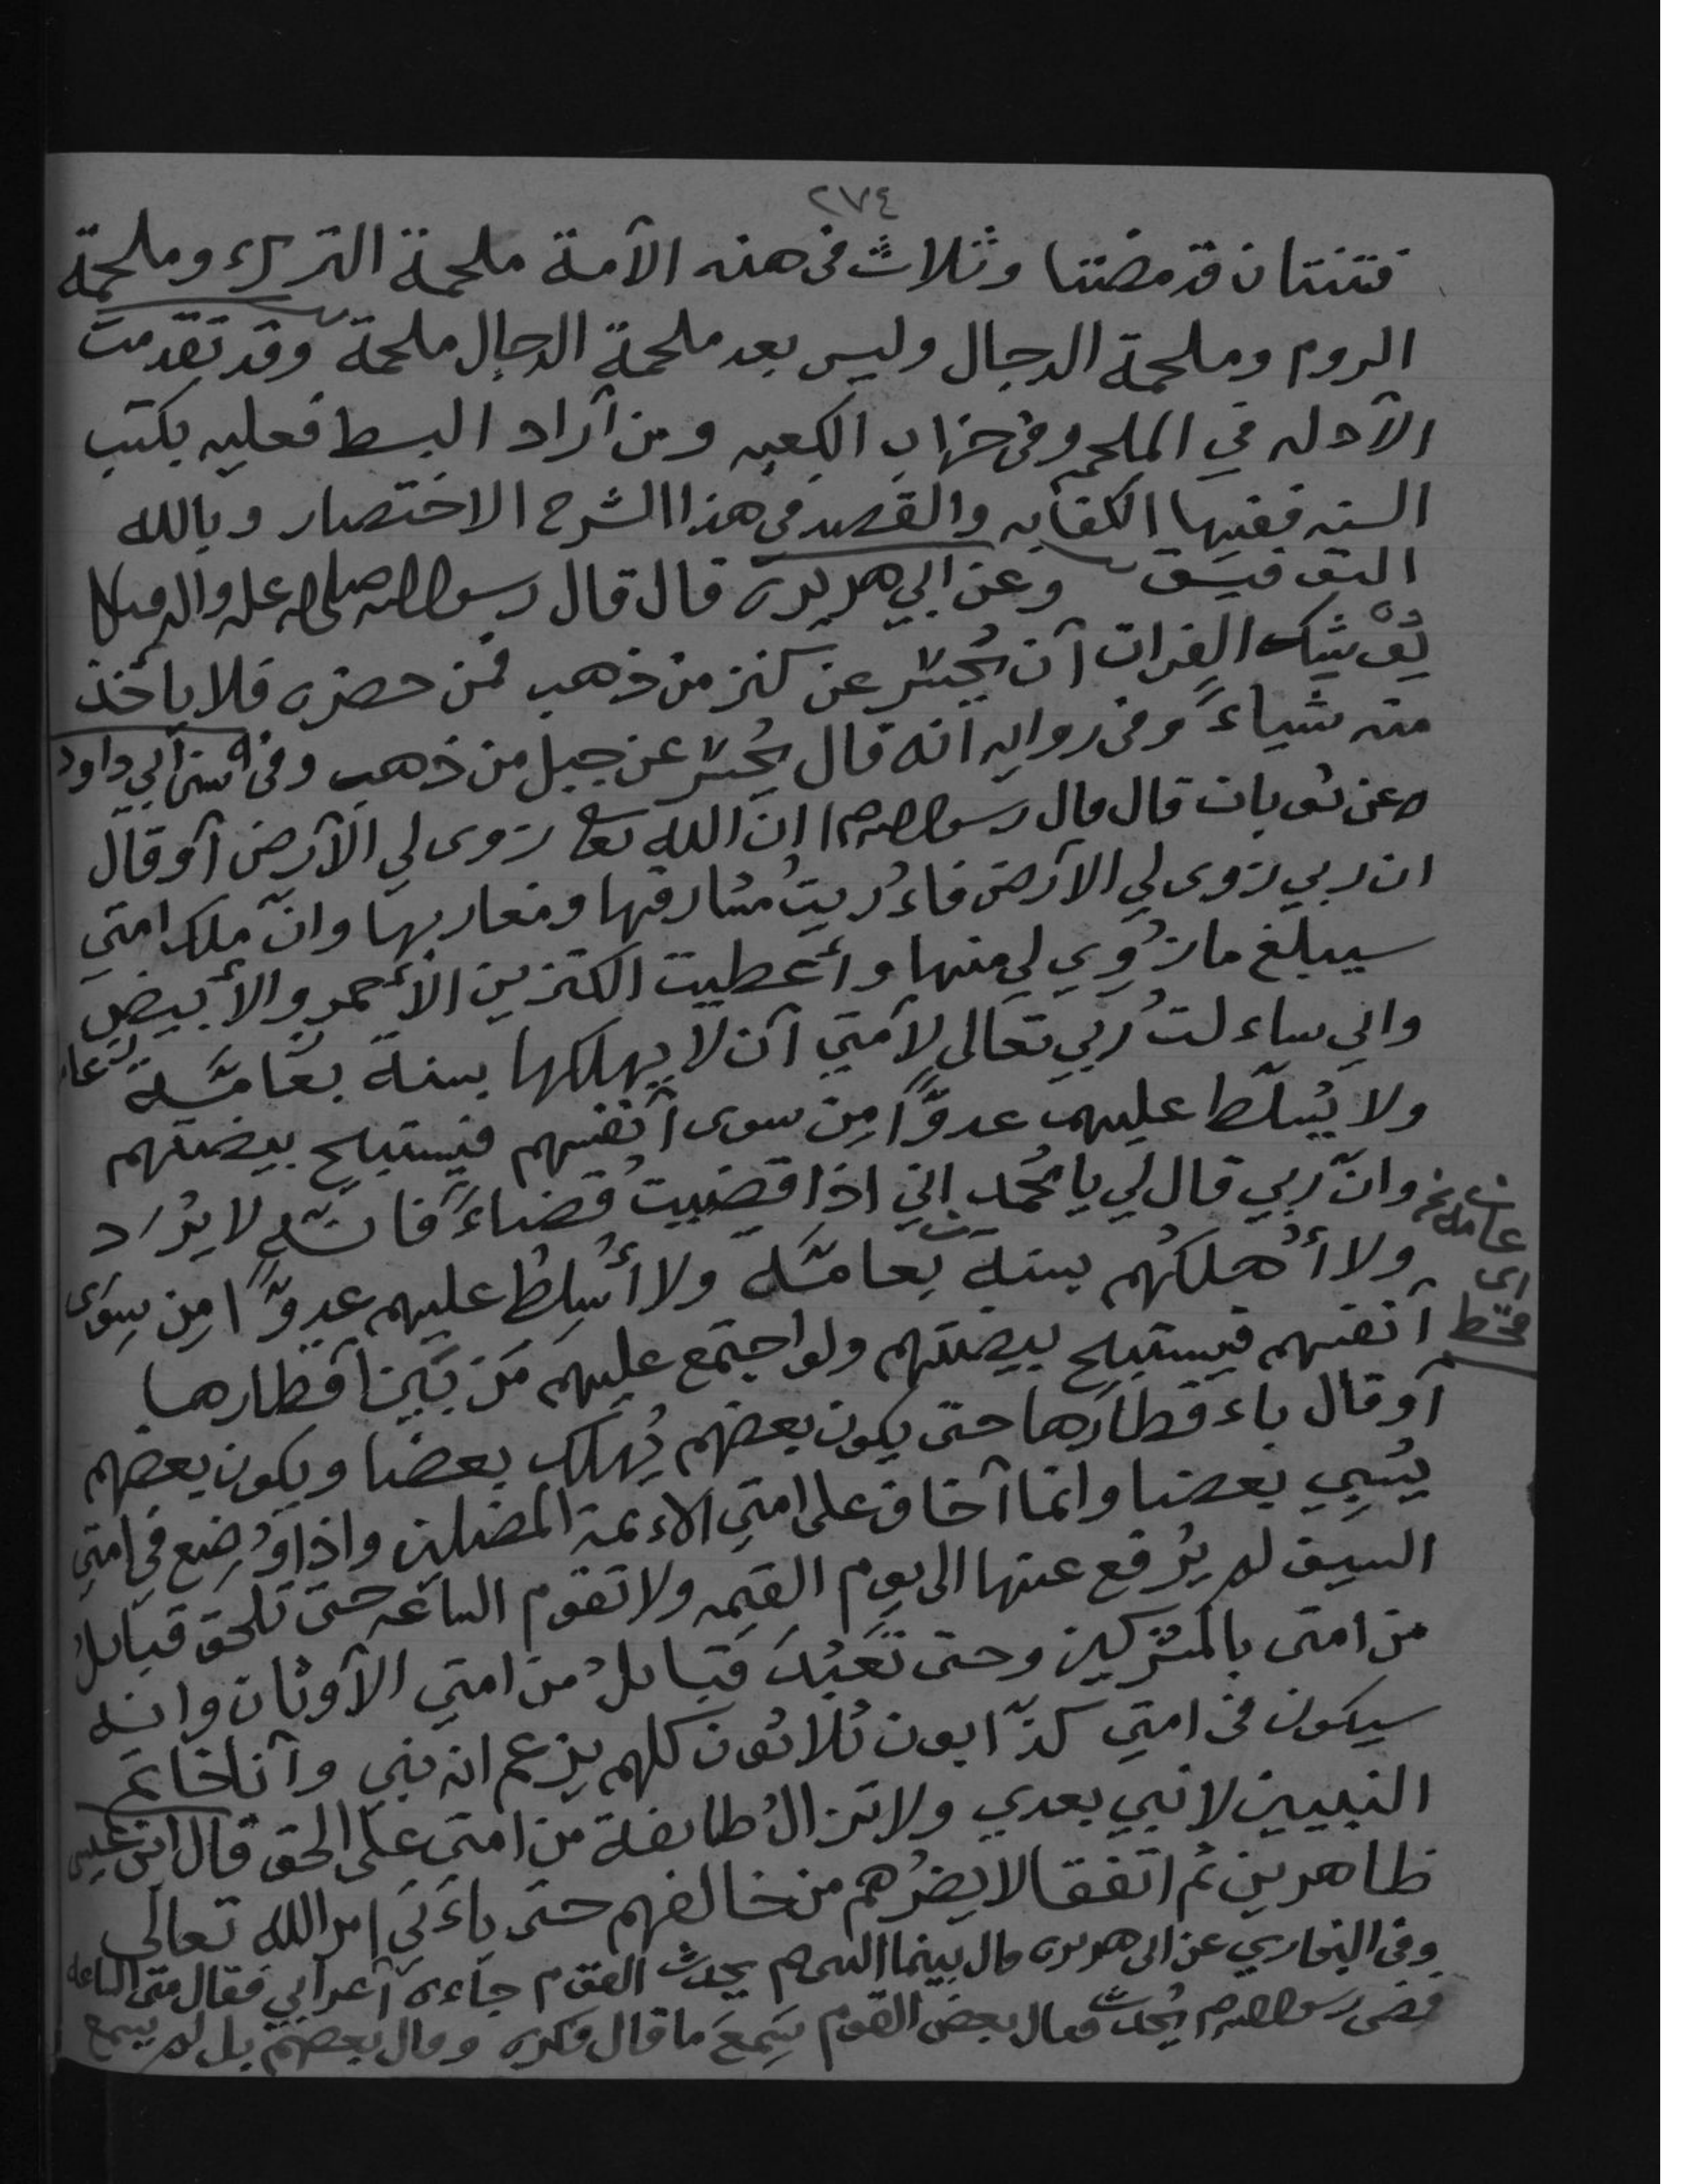 ٢٧٤
فتنتان قد مضتا وثلاث في هذه الآمة ملحمة الترك وملحمة
الروم وملحمة الدجال وليس بعد ملحمة الدجال ملحمة وقد تقدمت
الآدله في الملحم وفي خراب الكعبه ومن آراد البسط فعليه بكتب
السنه ففيها الكفايه والقصد في هذا الشرح الاختصار وبالله
التوفيق وعن ابي هريرة قال قال رسول الله صلى الله عليه واله وسلم
يُوْشِك الفرات آن يُحْسَر عن كنز من ذهب فمن حضره فلا ياخذ
منه شياءً وفي روايه آنه قال يُحْسَر عن جبل من ذهب وفي سنن آبي داود
عن ثوبان قال قال رسول الله م انّ الله تعا زوى لي الآرض آو قال
ان ربي زوى لي الآرض فاءُريتُ مشارقها ومغاربها وانّ ملك امتي
سيبلغ ما زُوِي لي منها وأعطيت الكنزين الأحمر والأبيض
واني ساءلتُ رَبي تعالى لآمتي آن لا يهلكها بسنة بعامّة
ولا يُسلّط عليهم عدوًّا مِن سوى آنفسهم فيستبيح بيضتهم
وانّ رَبي قال لي يا مُحمد اني اذا قضيتُ قضاءً فانّه لا يُرَد
ولا أُهلكهم بسنة بعامّه ولا أُسلطُ عليهم عدوًّا مِن سِوَى
آنفسهم فيستبيح بيضتهم ولو اجتمع عليهم مَن بَيْن آقطارها
آو قال باءقطارها حتى يكون بعضهم يُهلك بعضا ويكون بعضهم
يَسْبِي بعضا وانما آخاف على امتي الاءئمة المضلين واذا وُضِع في امتي
السيف لم يُرفع عنها الى يوم القيمه ولا تقوم الساعه حتى تلحق قبائلُ
من امتي بالمشركين وحتى تَعْبُدَ قبائلُ من امتي الآوثان وانه
سيكون في امتي كذّابون ثلاثون كلهم يزعم انه نبي وآنا خاتم
النبيين لا نبي بعدي ولا تزالُ طائفة من امتي على الحق قال ابن عيسى
ظاهرين ثم اتفقا لا يضرُهم من خالفهم حتى ياءَتي امر الله تعالى
وفي البخاري عن ابي هريره قال بينما النبي م يحدث القوم جاءه آعرابي فقال متى الساعه
فمضى رسول الله م يُحدث فقال بعض القوم سَمِعَ ما قال فكره وقال بعضهم بل لم يسمع
عامه نخ
اى
قحط